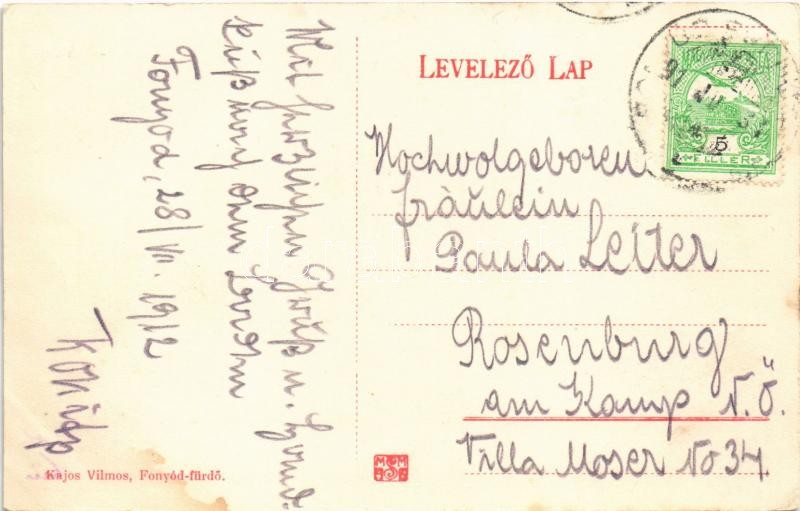 LEVELEZŐ LAP
5
FILLER
Hochwolgeboren
Fräulein
Paula Letter
Rosenburg
am Kamp N.Ö.
Villa Moser No 34.
Mit herzlichen Gruß u. Hand-
kuß von dem
Fonyod, 28/VII. 1912
MGM
Kajos Vilmos, Fonyód-fürdő.